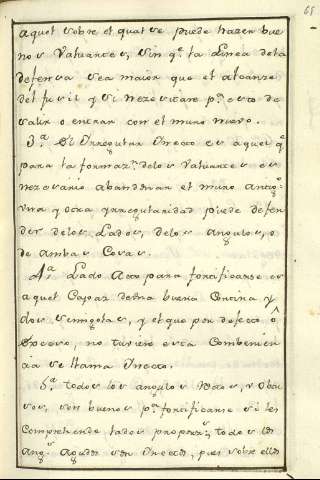 65
aquel sobre el qual se puede hazer bue
nos Valuartes, sin q.e la linea de la
defensa sea maior que el alcanze
del fusil y si nezesitare p.a esto de
salir o entrar con el muro nuevo.
3.a El Yrregular Yneccto es aquel q.e
para la formaz.n de los Valuartes es
nezesario abandonar el muro antig.o
una y otra yrregularidad puede depen
der de los Lados, de los angulos, o
de ambas Cosas.
4.a Lado Acto para fortificarse es
aquel Capaz de una buena Cortina y
dos semigolas, y el que por defecto ô
Exceso, no tuviere esta Combenien
cia se llama Ynecto.
5.a todos los angulos Rectos, y Obtu
sos, son buenos p.a fortificarse si les
Comprehende lados proporz.s, todos los
Ang.s Agudos son Ynectos, pues sobre ellos